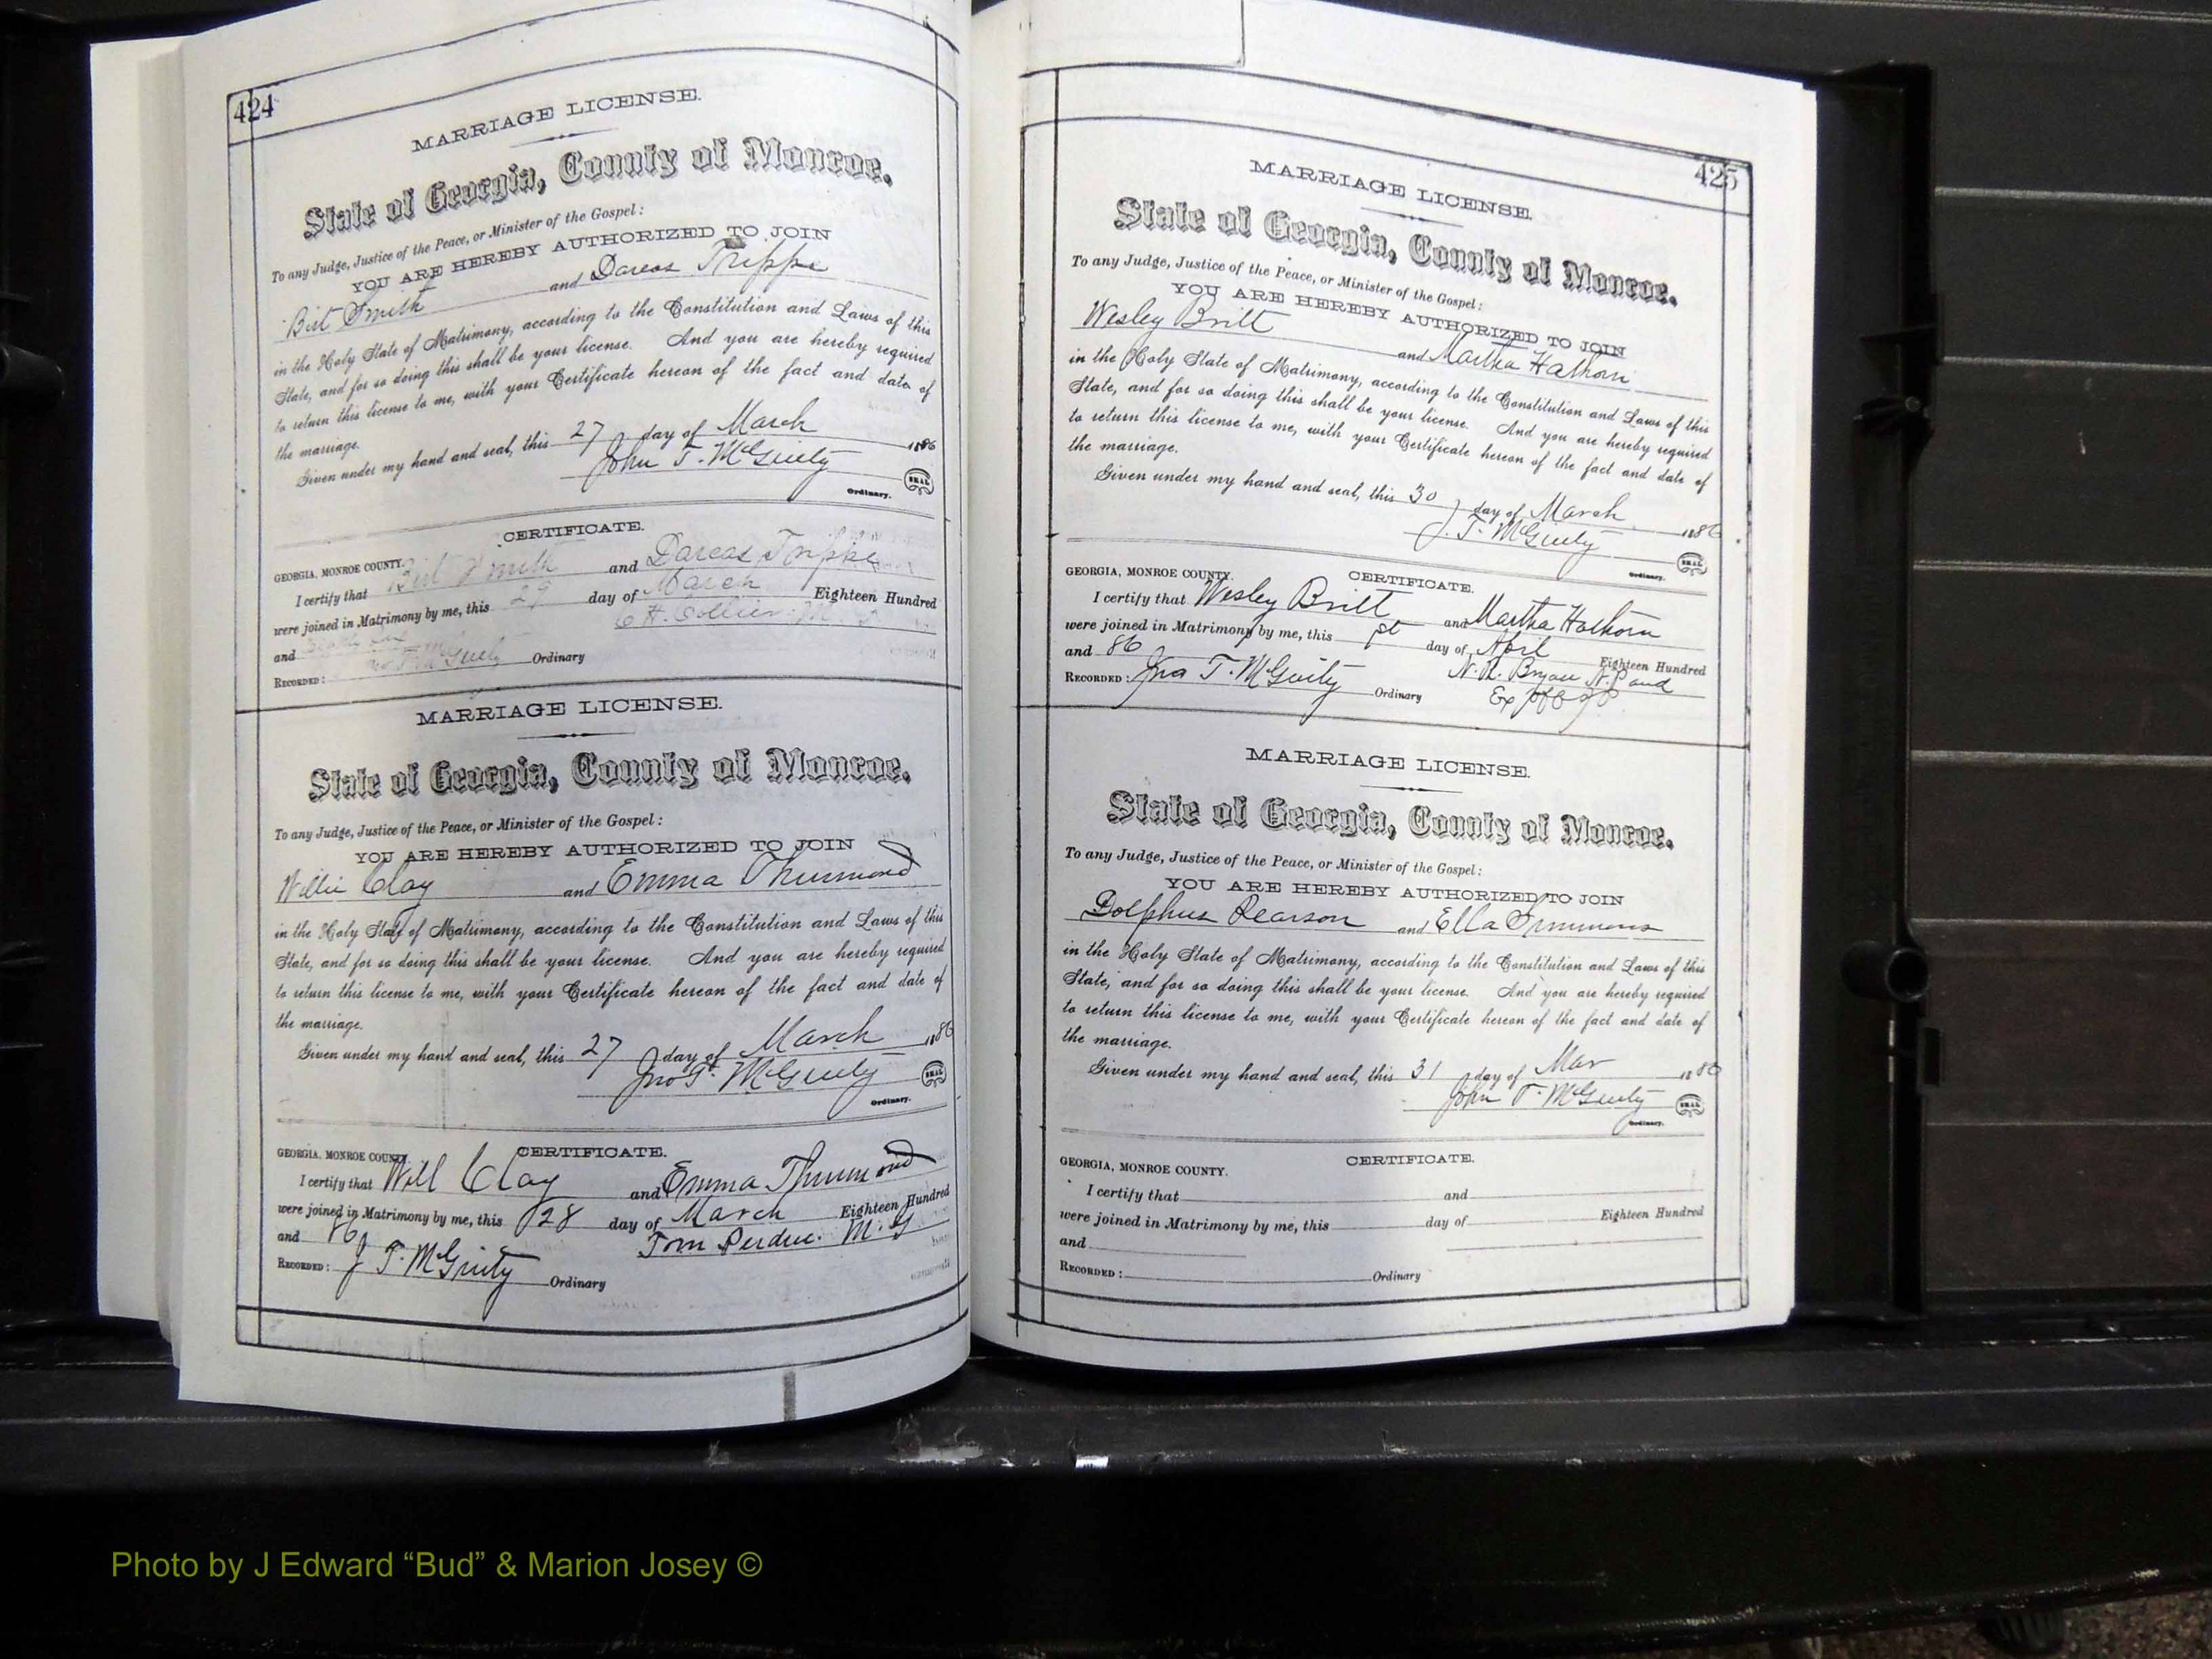 424
MARRIAGE LICENSE.
State of Georgia, County of Monroe.
To any Judge, Justice of the Peace, or Minister of the Gospel:
YOU ARE HEREBY AUTHORIZED TO JOIN
Birt Smith and Darcas Trippe
in the Holy State of Matrimony, according to the Constitution and Laws of this
State, and for so doing this shall be your license. And you are hereby required
to return this license to me, with your Certificate hereon of the fact and date of
the marriage.
Given under my hand and seal, this 27 day of March 1886
John T. McGinty
SEAL
Ordinary.
CERTIFICATE.
GEORGIA, MONROE COUNTY.
I certify that Birt Smith and Darcas Trippe
were joined in Matrimony by me, this 29 day of March Eighteen Hundred
and H. Collier
RECORDED: T. McGinty Ordinary
MARRIAGE LICENSE.
State of Georgia, County of Monroe.
To any Judge, Justice of the Peace, or Minister of the Gospel:
YOU ARE HEREBY AUTHORIZED TO JOIN
Willie Clay and Emma Thurmond
in the Holy State of Matrimony, according to the Constitution and Laws of this
State, and for so doing this shall be your license. And you are hereby required
to return this license to me, with your Certificate hereon of the fact and date of
the marriage.
Given under my hand and seal, this 27 day of March 1886
Jno T. McGinty
SEAL
Ordinary.
CERTIFICATE.
GEORGIA, MONROE COUNTY.
I certify that Will Clay and Emma Thurmond
were joined in Matrimony by me, this 28 day of March Eighteen Hundred
and 86 Tom Perdue. M. G
RECORDED: J T. McGinty Ordinary
425
MARRIAGE LICENSE.
State of Georgia, County of Monroe.
To any Judge, Justice of the Peace, or Minister of the Gospel:
YOU ARE HEREBY AUTHORIZED TO JOIN
Wesley Britt and Martha Hathorn
in the Holy State of Matrimony, according to the Constitution and Laws of this
State, and for so doing this shall be your license. And you are hereby required
to return this license to me, with your Certificate hereon of the fact and date of
the marriage.
Given under my hand and seal, this 30 day of March 1886
J. T. McGinty
SEAL
Ordinary.
CERTIFICATE.
GEORGIA, MONROE COUNTY.
I certify that Wesley Britt and Martha Hathorn
were joined in Matrimony by me, this 1st day of April Eighteen Hundred
and 86 N. R. Bryan N.P and
RECORDED: Jno T. McGinty Ordinary Ex off JP
MARRIAGE LICENSE.
State of Georgia, County of Monroe.
To any Judge, Justice of the Peace, or Minister of the Gospel:
YOU ARE HEREBY AUTHORIZED TO JOIN
Dolphus Pearson and Ella Simmons
in the Holy State of Matrimony, according to the Constitution and Laws of this
State, and for so doing this shall be your license. And you are hereby required
to return this license to me, with your Certificate hereon of the fact and date of
the marriage.
Given under my hand and seal, this 31 day of Mar 1886
John T. McGinty
SEAL
Ordinary.
CERTIFICATE.
GEORGIA, MONROE COUNTY.
I certify that and
were joined in Matrimony by me, this day of Eighteen Hundred
and
RECORDED: Ordinary
Photo by J Edward “Bud” & Marion Josey ©